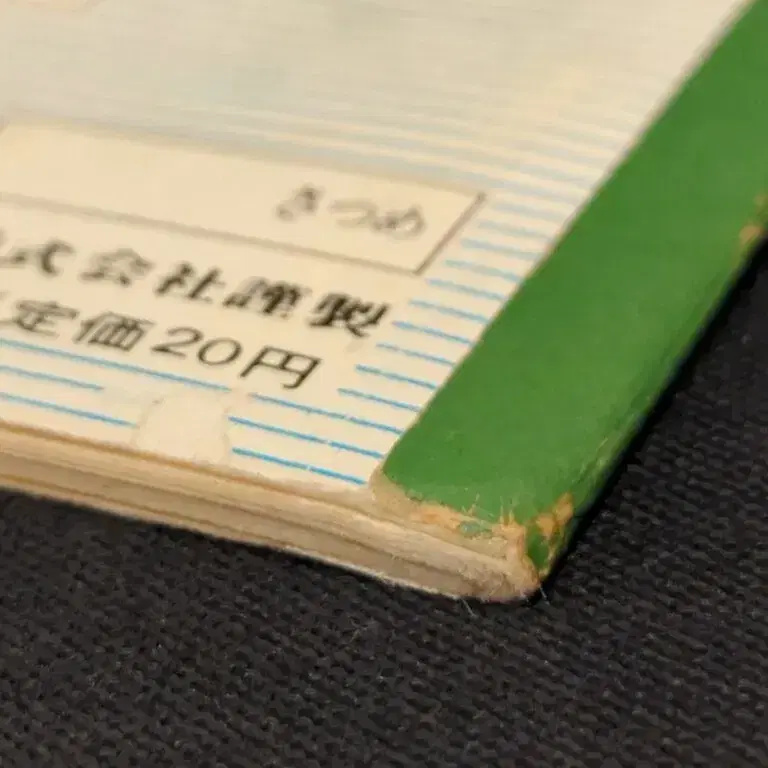 きつめ
式会社謹製
定価20円